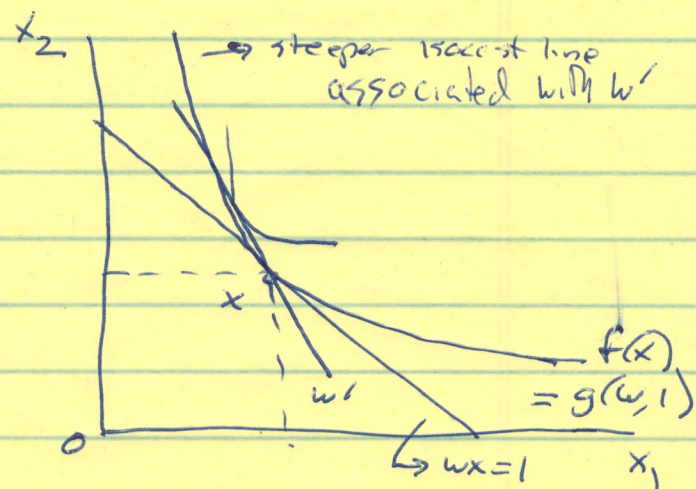 x₂
→ steeper isocost line
associated with w′
x
f(x)
= g(w,1)
w′
0
→ wx=1
x₁